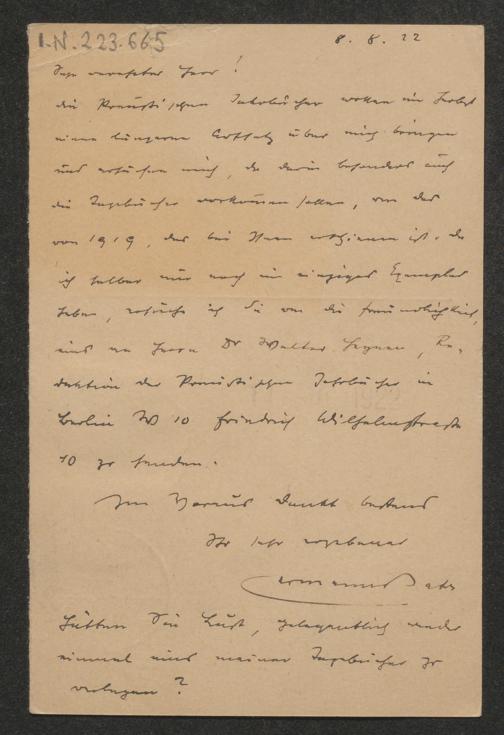 I.N. 223.665
8. 8. 22
Sehr verehrter Herr!
die Preussischen Jahrbücher wollen im Herbst
einen längeren Aufsatz über mich bringen
und ersuchen mich, da darin besonders auch
die Tagebücher vorkommen sollen, um das
von 1919, das bei Ihnen erschienen ist. Da
ich selber nur noch ein einziges Exemplar
habe, ersuche ich Sie um die Freundlichkeit,
eins an Herrn Dr Walter Heynen, Re-
daktion der Preussischen Jahrbücher in
Berlin W 10 Friedrich Wilhelmstrasse
10 zu senden.
Im Voraus dankt bestens
Ihr sehr ergebener
Hermann Bahr
Hätten Sie Lust, gelegentlich wieder
einmal eins meiner Tagebücher zu
verlegen?